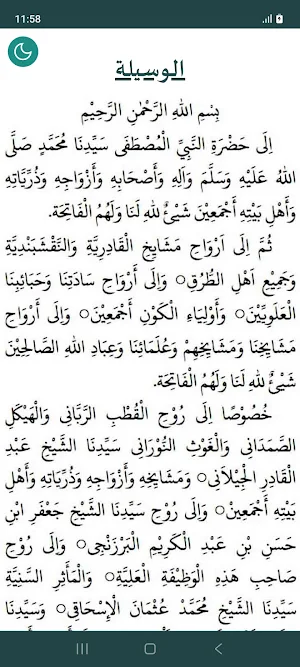 11:58
الوسيلة
بِسْمِ اللهِ الرَّحْمٰنِ الرَّحِيْمِ
اِلَى حَضْرَةِ النَّبِيِّ الْمُصْطَفَى سَيِّدِنَا مُحَمَّدٍ صَلَّى
اللهُ عَلَيْهِ وَسَلَّمَ وَآلِهِ وَأَصْحَابِهِ وَأَزْوَاجِهِ وَذُرِّيَّاتِهِ
وَأَهْلِ بَيْتِهِ أَجْمَعِيْنَ شَيْئٌ لِلهِ لَنَا وَلَهُمُ الْفَاتِحَة.
ثُمَّ اِلَى اَرْوَاحِ مَشَايِخِ الْقَادِرِيَّةِ وَالنَّقْشَبَنْدِيَّةِ
وَجَمِيْعِ اَهْلِ الطُّرُقِ○ وَاِلَى أَرْوَاحِ سَادَتِنَا وَحَبَائِبِنَا
الْعَلَوِيِّيْنَ○ وَأَوْلِيَاءِ الْكَوْنِ أَجْمَعِيْنَ○ وَاِلَى أَرْوَاحِ
مَشَايِخِنَا وَمَشَايِخِهِمْ وَعُلَمَائِنَا وَعِبَادِ اللهِ الصَّالِحِيْنَ
شَيْئٌ لِلهِ لَنَا وَلَهُمُ الْفَاتِحَة.
خُصُوْصًا اِلَى رُوْحِ الْقُطْبِ الرَّبَّانِى وَالْهَيْكَلِ
الصَّمَدَانِى وَالْغَوْثِ النُّوْرَانِى سَيِّدِنَا الشَّيْخِ عَبْدِ
الْقَادِرِ الْجِيْلَانِى○ وَمَشَايِخِهِ وَأَزْوَاجِهِ وَذُرِّيَّاتِهِ وَأَهْلِ
بَيْتِهِ أَجْمَعِيْنَ○ وَاِلَى رُوْحِ سَيِّدِنَا الشَّيْخِ جَعْفَرِ ابْنِ
حَسَنِ بْنِ عَبْدِ الْكَرِيْمِ الْبَرْزَنْجِى○ وَاِلَى رُوْحِ
صَاحِبِ هَذِهِ الْوَظِيْفَةِ الْعَلِيَّةِ○ وَالْمَآثِرِ السَّنِيَّةِ
سَيِّدِنَا الشَّيْخِ مُحَمَّدْ عُثْمَانِ الْإِسْحَاقِى○ وَسَيِّدِنَا